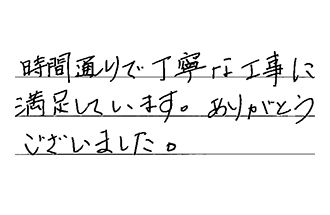 時間通りで丁寧な工事に
満足しています。ありがとう
ございました。